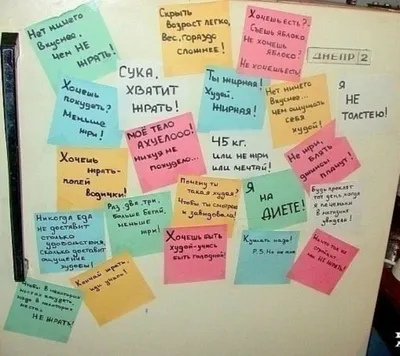 Нет ничего
вкуснее,
чем НЕ
ЖРАТЬ!
Скрыть
возраст легко,
Вес, гораздо
сложнее!
Хочешь есть?
Съешь яблоко.
Не хочешь
яблоко?
Не хочешь есть!
ДНЕПР 2
Хочешь
похудеть?
Меньше
жри!
СУКА,
ХВАТИТ
ЖРАТЬ!
Ты жирная!
Худей,
ЖИРНАЯ!
Нет ничего
вкуснее...
чем ощущать
себя
худой!
Я
НЕ
ТОЛСТЕЮ!
Хочешь
жрать-
попей
водички!
МОЁ ТЕЛО
АХУЕЛООО:
нихуя не
похудело...
45 кг.
или не жри
или мечтай!
Не жри,
блять
джинсы
плачут!
Никогда еда
не доставит
столько
удовольствия,
сколько доставит
ощущение
худобы!
Раз, два, три,
больше бегай,
меньше
жри!
Почему ты
такая худая?
Чтобы ты смотрел
и завидовал
Я
на
ДИЕТЕ!
Будь проклят
тот день, когда
я
Чтобы в некоторых
местах похудеть,
надо в некоторых
местах
НЕ ЖРАТЬ!
Кончай жрать,
иди
Хочешь быть
худой-учись
быть голодной!
Кушать надо!
P.S. Но не мне
НЕ ЖРАТЬ!